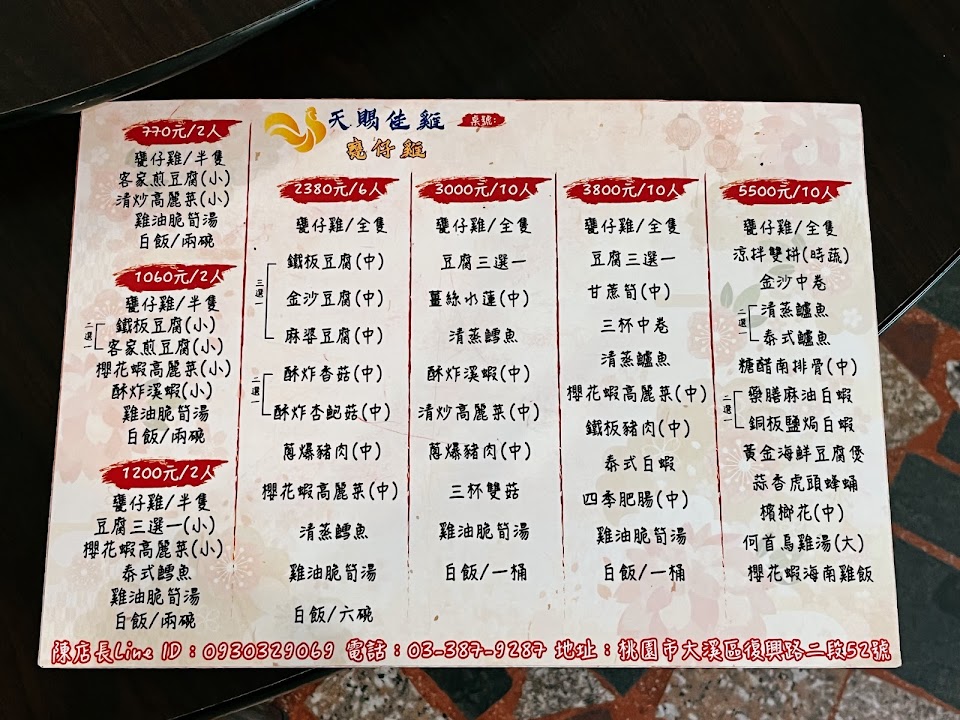 天賜佳雞
甕仔雞
桌號:
770元/2人
甕仔雞/半隻
客家煎豆腐(小)
清炒高麗菜(小)
雞油脆筍湯
白飯/兩碗
1060元/2人
甕仔雞/半隻
二選一
鐵板豆腐(小)
客家煎豆腐(小)
櫻花蝦高麗菜(小)
酥炸溪蝦(小)
雞油脆筍湯
白飯/兩碗
1200元/2人
甕仔雞/半隻
豆腐三選一(小)
櫻花蝦高麗菜(小)
泰式鱈魚
雞油脆筍湯
白飯/兩碗
2380元/6人
甕仔雞/全隻
三選一
鐵板豆腐(中)
金沙豆腐(中)
麻婆豆腐(中)
二選一
酥炸香菇(中)
酥炸杏鮑菇(中)
蔥爆豬肉(中)
櫻花蝦高麗菜(中)
清蒸鱈魚
雞油脆筍湯
白飯/六碗
3000元/10人
甕仔雞/全隻
豆腐三選一
薑絲水蓮(中)
清蒸鱈魚
酥炸溪蝦(中)
清炒高麗菜(中)
蔥爆豬肉(中)
三杯雙菇
雞油脆筍湯
白飯/一桶
3800元/10人
甕仔雞/全隻
豆腐三選一
甘蔗筍(中)
三杯中卷
清蒸鱸魚
櫻花蝦高麗菜(中)
鐵板豬肉(中)
泰式白蝦
四季肥腸(中)
雞油脆筍湯
白飯/一桶
5500元/10人
甕仔雞/全隻
涼拌雙拼(時蔬)
金沙中卷
二選一
清蒸鱸魚
泰式鱸魚
糖醋南排骨(中)
二選一
藥膳麻油白蝦
銅板鹽焗白蝦
黃金海鮮豆腐煲
蒜香虎頭蜂蛹
檳榔花(中)
何首烏雞湯(大)
櫻花蝦海南雞飯
陳店長Line ID：0930329069 電話：03-387-9287 地址：桃園市大溪區復興路二段52號